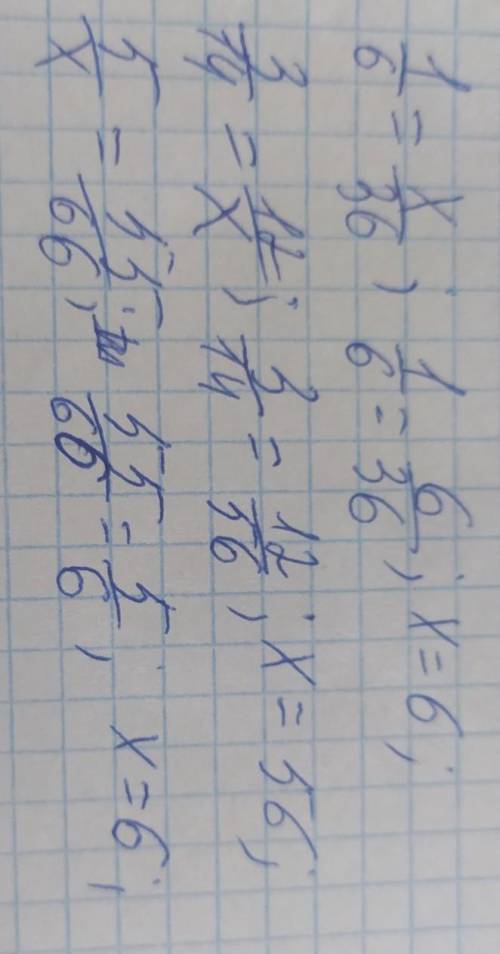 1/6 = x/36; 1/6 = 6/36; x = 6;
3/14 = 12/x; 3/14 = 12/56; x = 56;
5/x = 55/66; 55/66 = 5/6; x = 6;